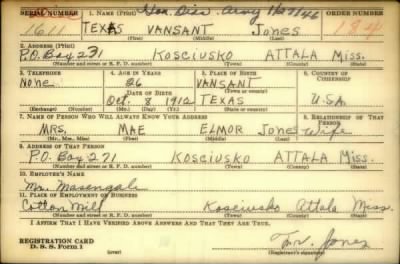 SERIAL NUMBER 1. NAME (Print) Hon Disc. Army ORDER NUMBER
1611 TEXAS VANSANT Jones 184
(First) (Middle) (Last)
2. ADDRESS (Print)
P.O. Box 271 KOSCIUSKO ATTALA Miss.
(Number and street or R. F. D. number) (Town) (County) (State)
3. TELEPHONE 4. AGE IN YEARS 5. PLACE OF BIRTH 6. COUNTRY OF CITIZENSHIP
None 26 VANSANT
DATE OF BIRTH (Town or county)
Oct. 8 1912 TEXAS U.S.A.
(Exchange) (Number) (Mo.) (Day) (Yr.) (State or country)
7. NAME OF PERSON WHO WILL ALWAYS KNOW YOUR ADDRESS 8. RELATIONSHIP OF THAT PERSON
MRS, MAE ELMOR Jones Wife
(Mr., Mrs., Miss) (First) (Middle) (Last)
9. ADDRESS OF THAT PERSON
P.O. Box 271 KOSCIUSKO ATTALA Miss.
(Number and street or R. F. D. number) (Town) (County) (State)
10. EMPLOYER'S NAME
Mr. Masengale
11. PLACE OF EMPLOYMENT OR BUSINESS
Cotton Mill Kosciusko Attala Miss.
(Number and street or R. F. D. number) (Town) (County) (State)
I AFFIRM THAT I HAVE VERIFIED ABOVE ANSWERS AND THAT THEY ARE TRUE.
REGISTRATION CARD
D. S. S. Form 1 T.V. Jones
(Registrant's signature)